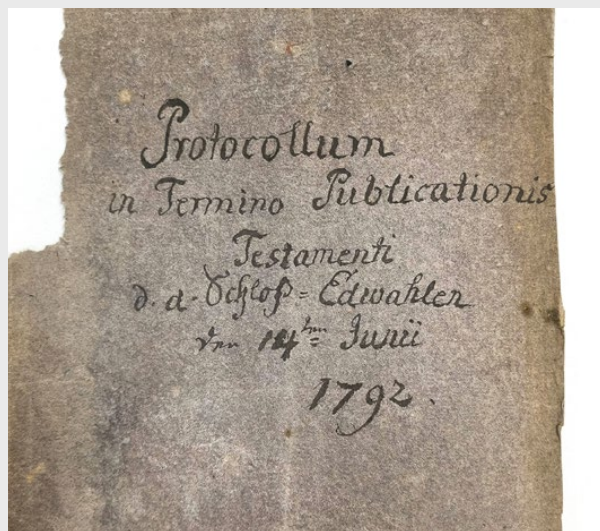 Protocollum
in Termino Publicationis
Testamenti
d. d. Schloß = Edwahlen
den 14ten Junii
1792.